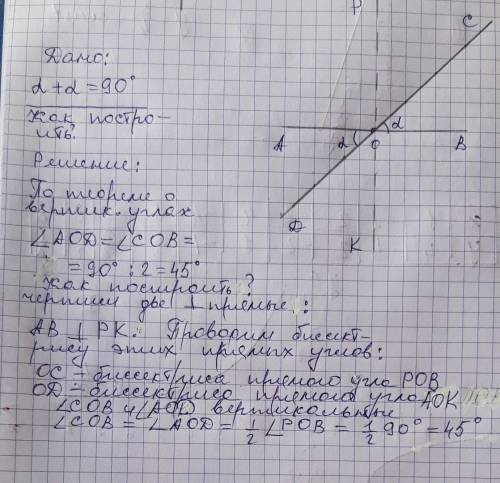 Дано:
α + α = 90°
Как постро-
ить?
Решение:
По теореме о
вертик. углах
∠AOD = ∠COB =
= 90° : 2 = 45°
Как построить?
чертим две ⊥ прямые:
AB ⊥ PK. Проводим биссект-
рису этих прямых углов:
OC - биссектриса прямого угла POB
OD - биссектриса прямого угла AOK
∠COB и ∠AOD вертикальные
∠COB = ∠AOD = 1/2 ∠POB = 1/2 90° = 45°
P
C
A
α
α
O
B
D
K